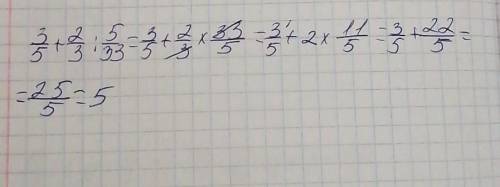 3/5 + 2/3 : 5/33 = 3/5 + 2/3 × 33/5 = 3/5 + 2 × 11/5 = 3/5 + 22/5 =
= 25/5 = 5